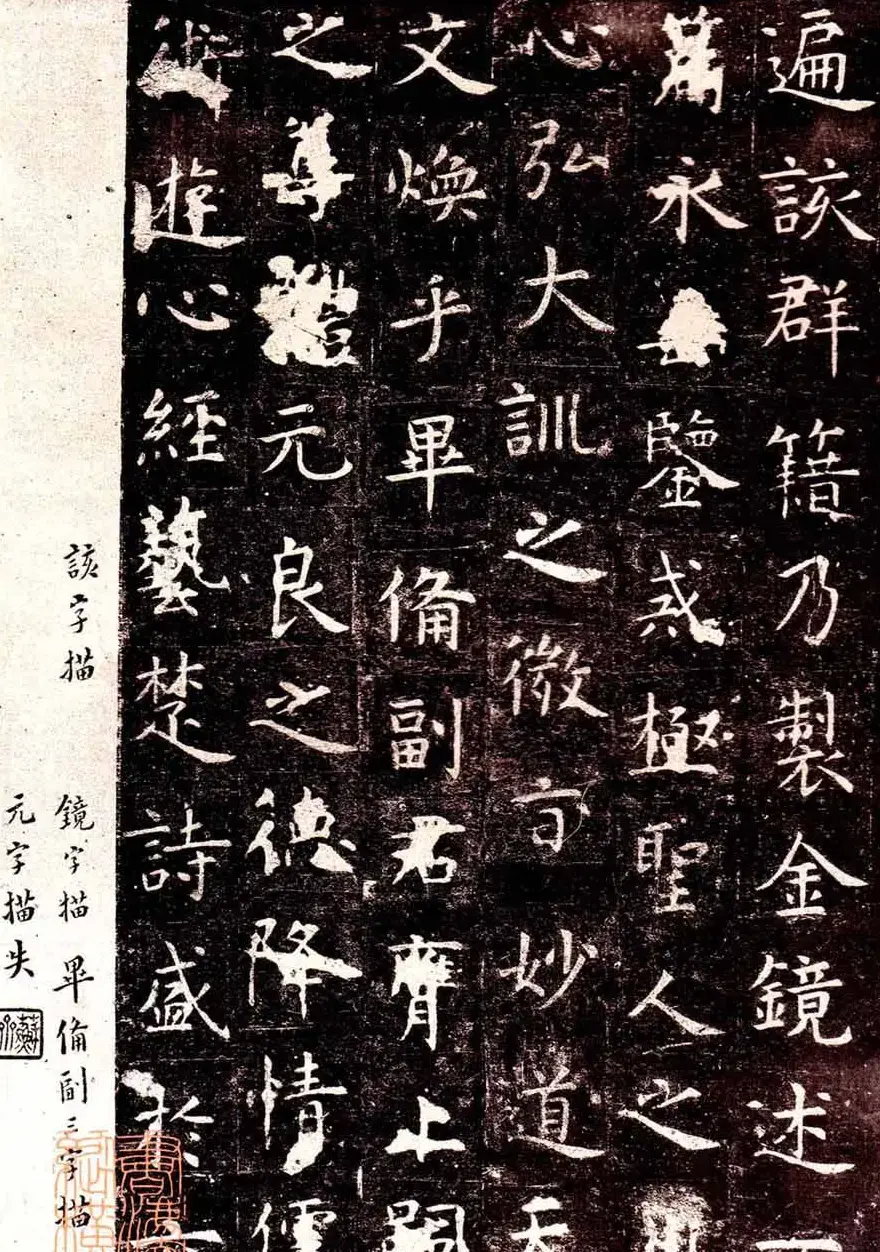 遍該群籍乃製金鏡述一
篇永鑒戒極聖人之
心弘大訓之微旨妙道天
文煥乎畢備副君膺上嗣
之尊體元良之德降情儒
術遊心經藝楚詩盛於
該字描
鏡字描 畢備副三字描
元字描失